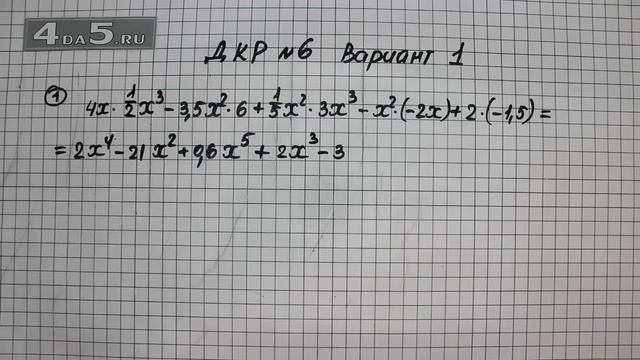 4DA5.RU
ДКР №6 Вариант 1
① 4x · 1/2 x³ - 3,5x² · 6 + 1/5 x² · 3x³ - x² · (-2x) + 2 · (-1,5) =
= 2x⁴ - 21x² + 0,6x⁵ + 2x³ - 3